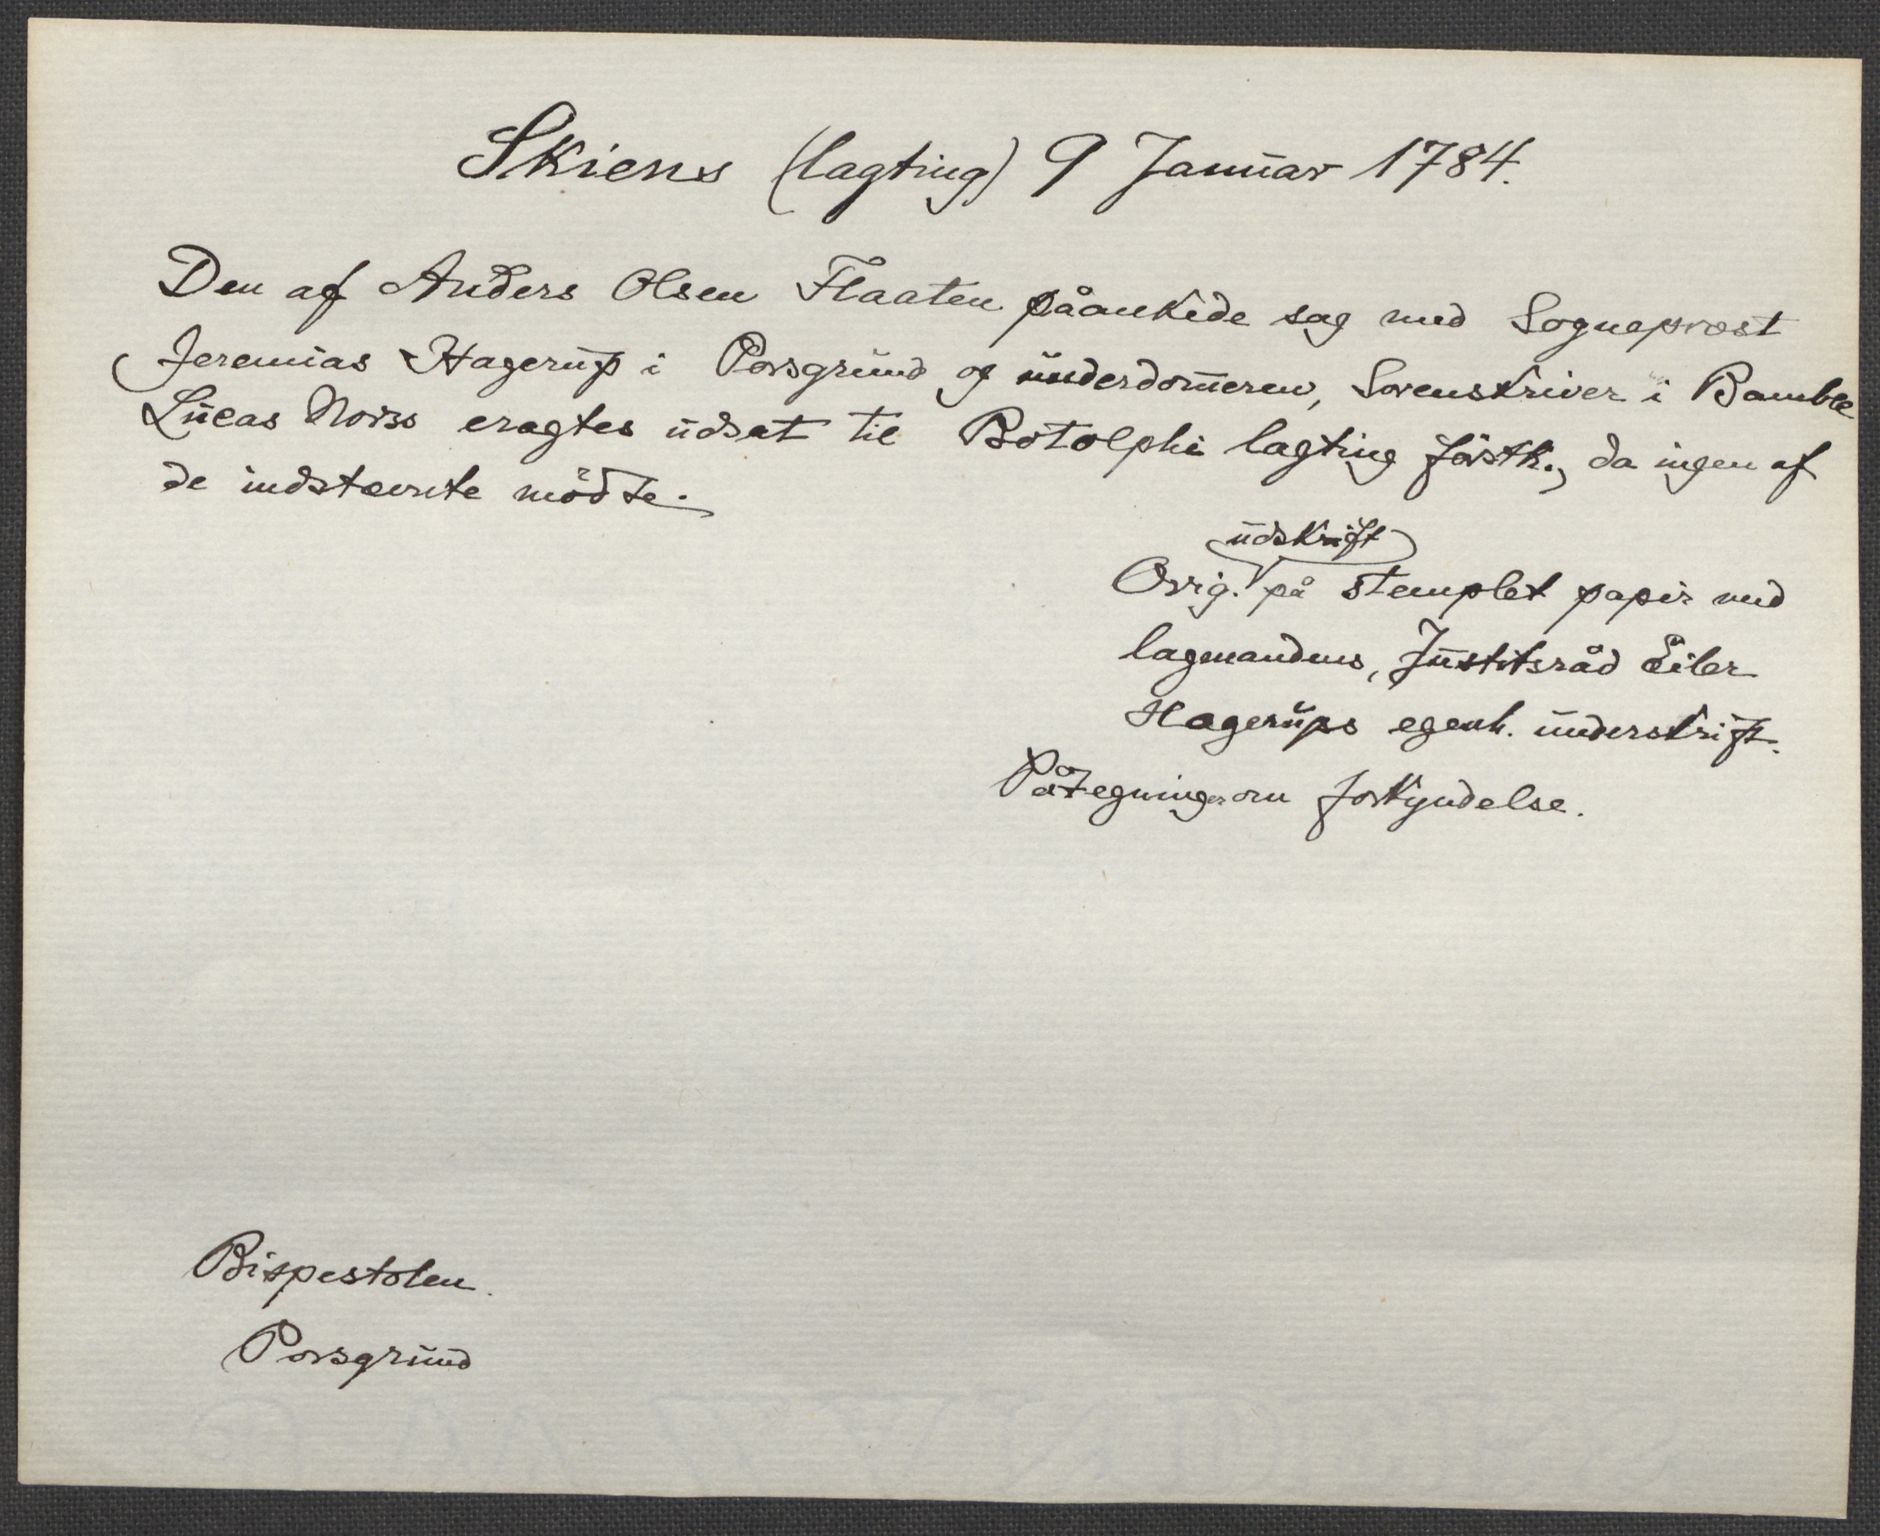 Skiens (lagting) 9 Januar 1784.
Den af Anders Olsen Flaaten påankede sag med Sogneprest
Jeremias Hagerup i Porsgrund og underdomeren, Sorenskriver i Bamble
Lucas eragtes udsat til Botolphi lagting förstk., da ingen af
de indstævnte mödte.
udskrift
Orig. på stemplet papir med
lagmandens, Justitsråd Eiler
Hagerups egenh. underskrift.
Påtegninger om forkyndelse.
Bispestolen.
Porsgrund